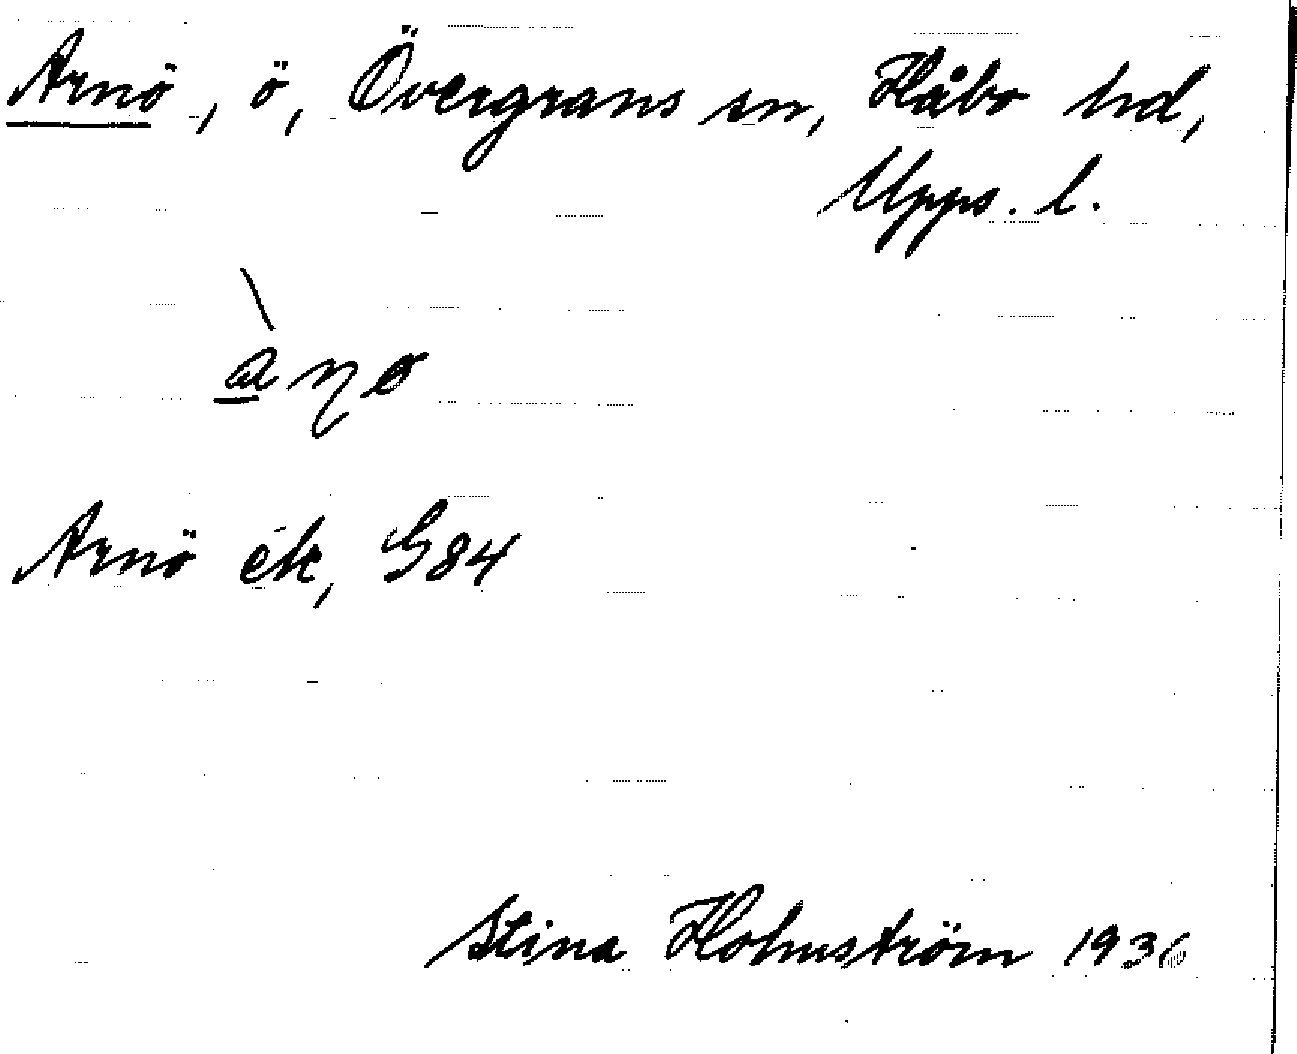 Arnö, ö, Övergrans sn, Håbo hd,
Upps. l.
Arnö ek, G84
Stina Holmström 1936